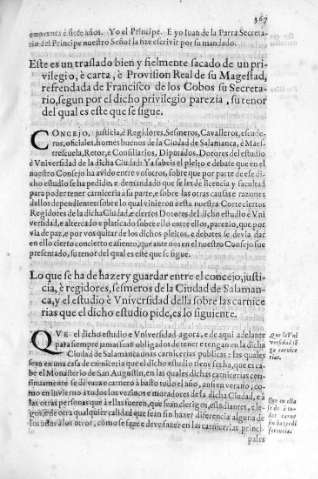 367
cinquenta è siete años. Yo el Principe. E yo Iuan de la Parra Secreta-
rio del Principe nuestro Señor la hize escrivir por su mandado.
Este es un traslado bien y fielmente sacado de un pri-
vilegio, è carta, è Provision Real de su Magestad,
refrendada de Francisco de los Cobos su Secreta-
rio, segun por el dicho privilegio parezia, su tenor
del qual es este que se sigue.
CONCEJO, justicia, è Regidores, Sesmeros, Cavalleros, escude-
ros, oficiales, homes buenos de la Ciudad de Salamanca, è Maes-
trescuela, Retor, è Consiliarios, Diputados, Dotores del estudio
è Vniversidad de la dicha Ciudad: Ya sabeis el pleito è debate que en el
nuestro Consejo ha avido entre vosotros, sobre que por parte de esse di-
cho estudio se ha pedido, è demandado que se les dè licencia y facultad
para poder tener carniceria a su parte, è sobre las otras causas è razones
dallos dependientes sobre lo qual vinieron a esta nuestra Corte ciertos
Regidores de la dicha Ciudad, è ciertos Dotores del dicho estudio è Vni
versidad, è altercado è platicado sobre ello entre ellos, parezio, que por
via de paz, è por vos quitar de los dichos pleitos, è debates se devia dar
en ello cierto concierto è assiento, que ante nos en el nuestro Consejo fue
presentado, su tenor del qual es este que se sigue.
Lo que se ha de hazer y guardar entre el concejo, justi
cia, è regidores, sesmeros de la Ciudad de Salaman-
ca, y el estudio è Vniversidad della sobre las carnice
rias que el dicho estudio pide, es lo siguiente.
QVE el dicho estudio è Vniversidad agora, è de aqui adelante
para siempre jamas sean obligados de tener è tengan en la dicha
Ciudad de Salamanca unas carnicerias publicas: las quales
sean en una casa de carniceria que el dicho estudio tiene fecha, que es ca-
be el Monasterio de San Augustin, en las quales dichas carnicerias
se dè vaca è carnero à basto todo el año, ansi en verano, co-
mo en invierno à todos los vezinos è moradores de la dicha Ciudad, è à
las otras personas que à ellas fueren, que sean clerigos, estudiantes, è le-
gos, è de otra qualquier calidad que sean sin hazer diferencia alguna de
los unos à los otros, como se sigue è deve fazer en las carnicerias princi-
pales